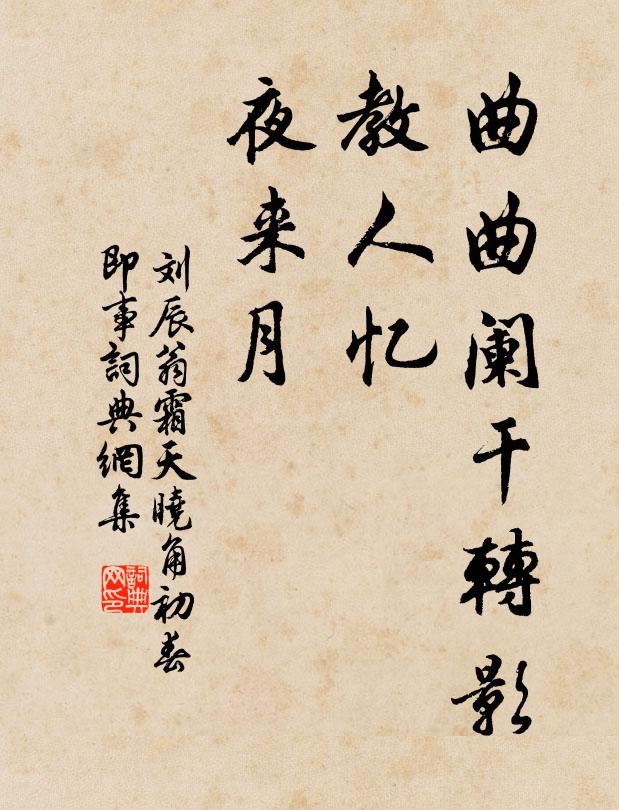 曲曲阑干轉影
教人忆
夜来月
刘辰翁霜天曉角初春
即事詞典網集
詞典网印